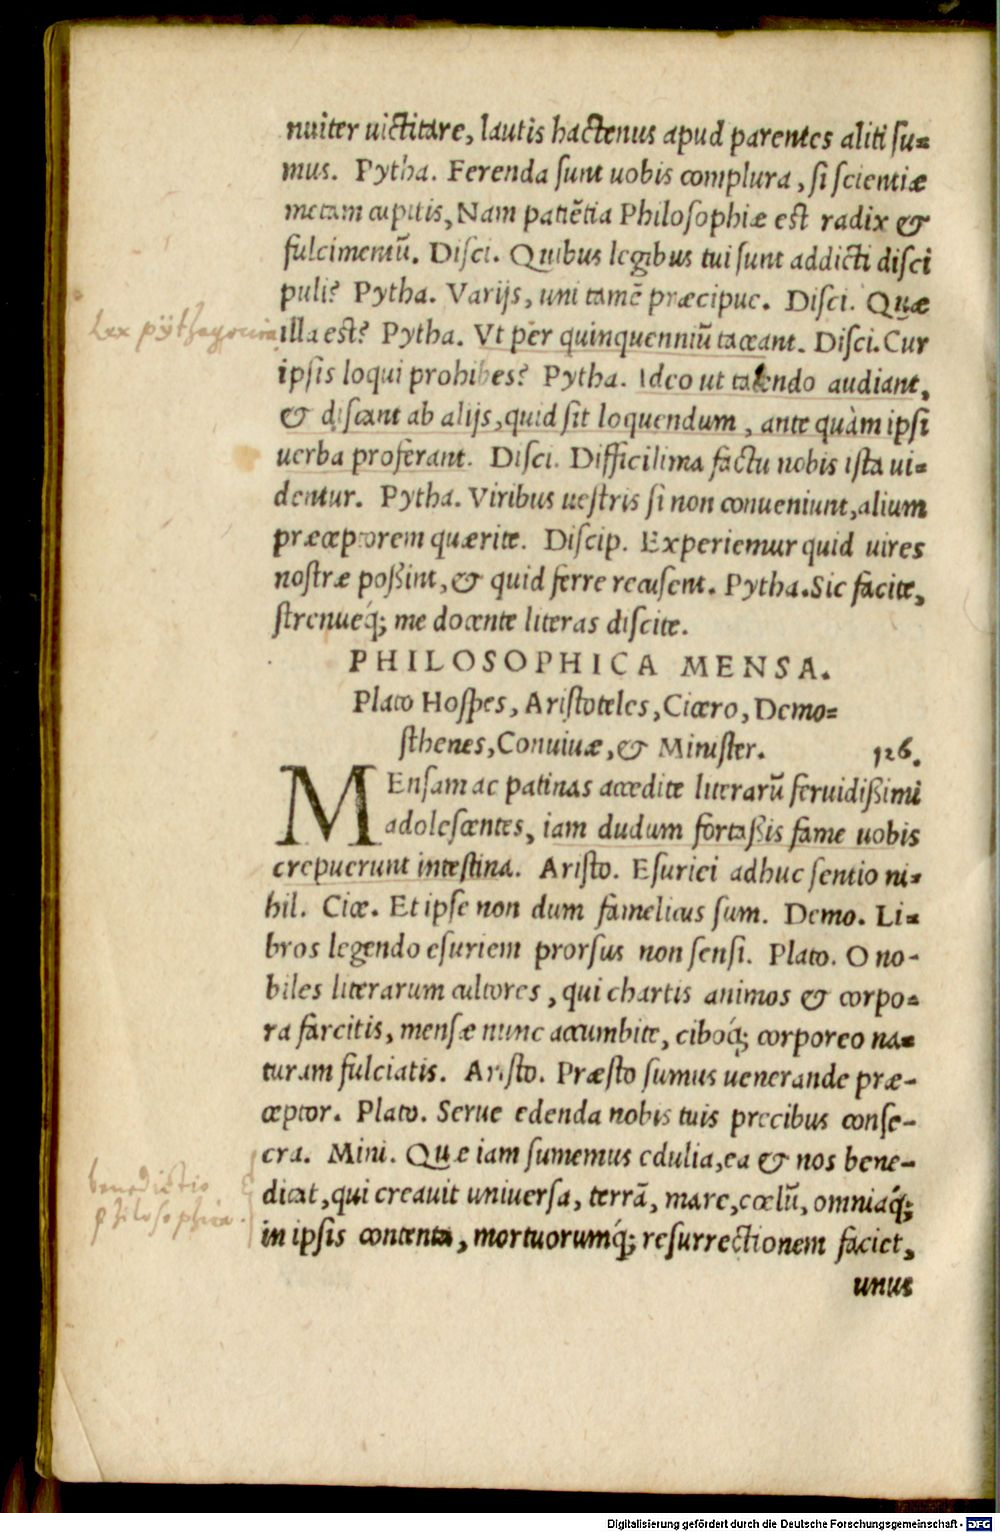 nuiter uictitare, lautis hactenus apud parentes aliti su=
mus. Pytha. Ferenda sunt uobis complura, si scientiæ
metam cupitis, Nam patiẽtia Philosophiæ est radix &
fulcimentũ. Disci. Quibus legibus tui sunt addicti disci
puli? Pytha. Varijs, uni tamẽ præcipue. Disci. Quæ
Lex pÿthagorica
illa est? Pytha. Vt per quinquenniũ taceant. Disci. Cur
ipsis loqui prohibes? Pytha. Ideo ut tacendo audiant,
& discant ab alijs, quid sit loquendum, ante quàm ipsi
uerba proferant. Disci. Difficilima factu nobis ista ui=
dentur. Pytha. Viribus uestris si non conueniunt, alium
præceptorem quærite. Discip. Experiemur quid uires
nostræ poßint, & quid ferre recusent. Pytha. Sic facite,
strenueq́; me docente literas discite.
PHILOSOPHICA MENSA.
Plato Hospes, Aristoteles, Cicero, Demo=
sthenes, Conuiuæ, & Minister. 126.
MEnsam ac patinas accedite literarũ feruidißimi
adolescentes, iam dudum fortaßis fame uobis
crepuerunt intestina. Aristo. Esuriei adhuc sentio ni=
hil. Cice. Et ipse non dum famelicus sum. Demo. Li=
bros legendo esuriem prorsus non sensi. Plato. O no-
biles literarum cultores, qui chartis animos & corpo=
ra farcitis, mensæ nunc accumbite, ciboq́; corporeo na=
turam fulciatis. Aristo. Præsto sumus uenerande præ-
ceptor. Plato. Serue edenda nobis tuis precibus conse-
cra. Mini. Quæ iam sumemus edulia, ea & nos bene-
benedictio
philosophica.
dicat, qui creauit uniuersa, terrã, mare, cœlũ, omniaq́;
in ipsis contenta, mortuorumq́; resurrectionem faciet,
unus
Digitalisierung gefördert durch die Deutsche Forschungsgemeinschaft - DFG